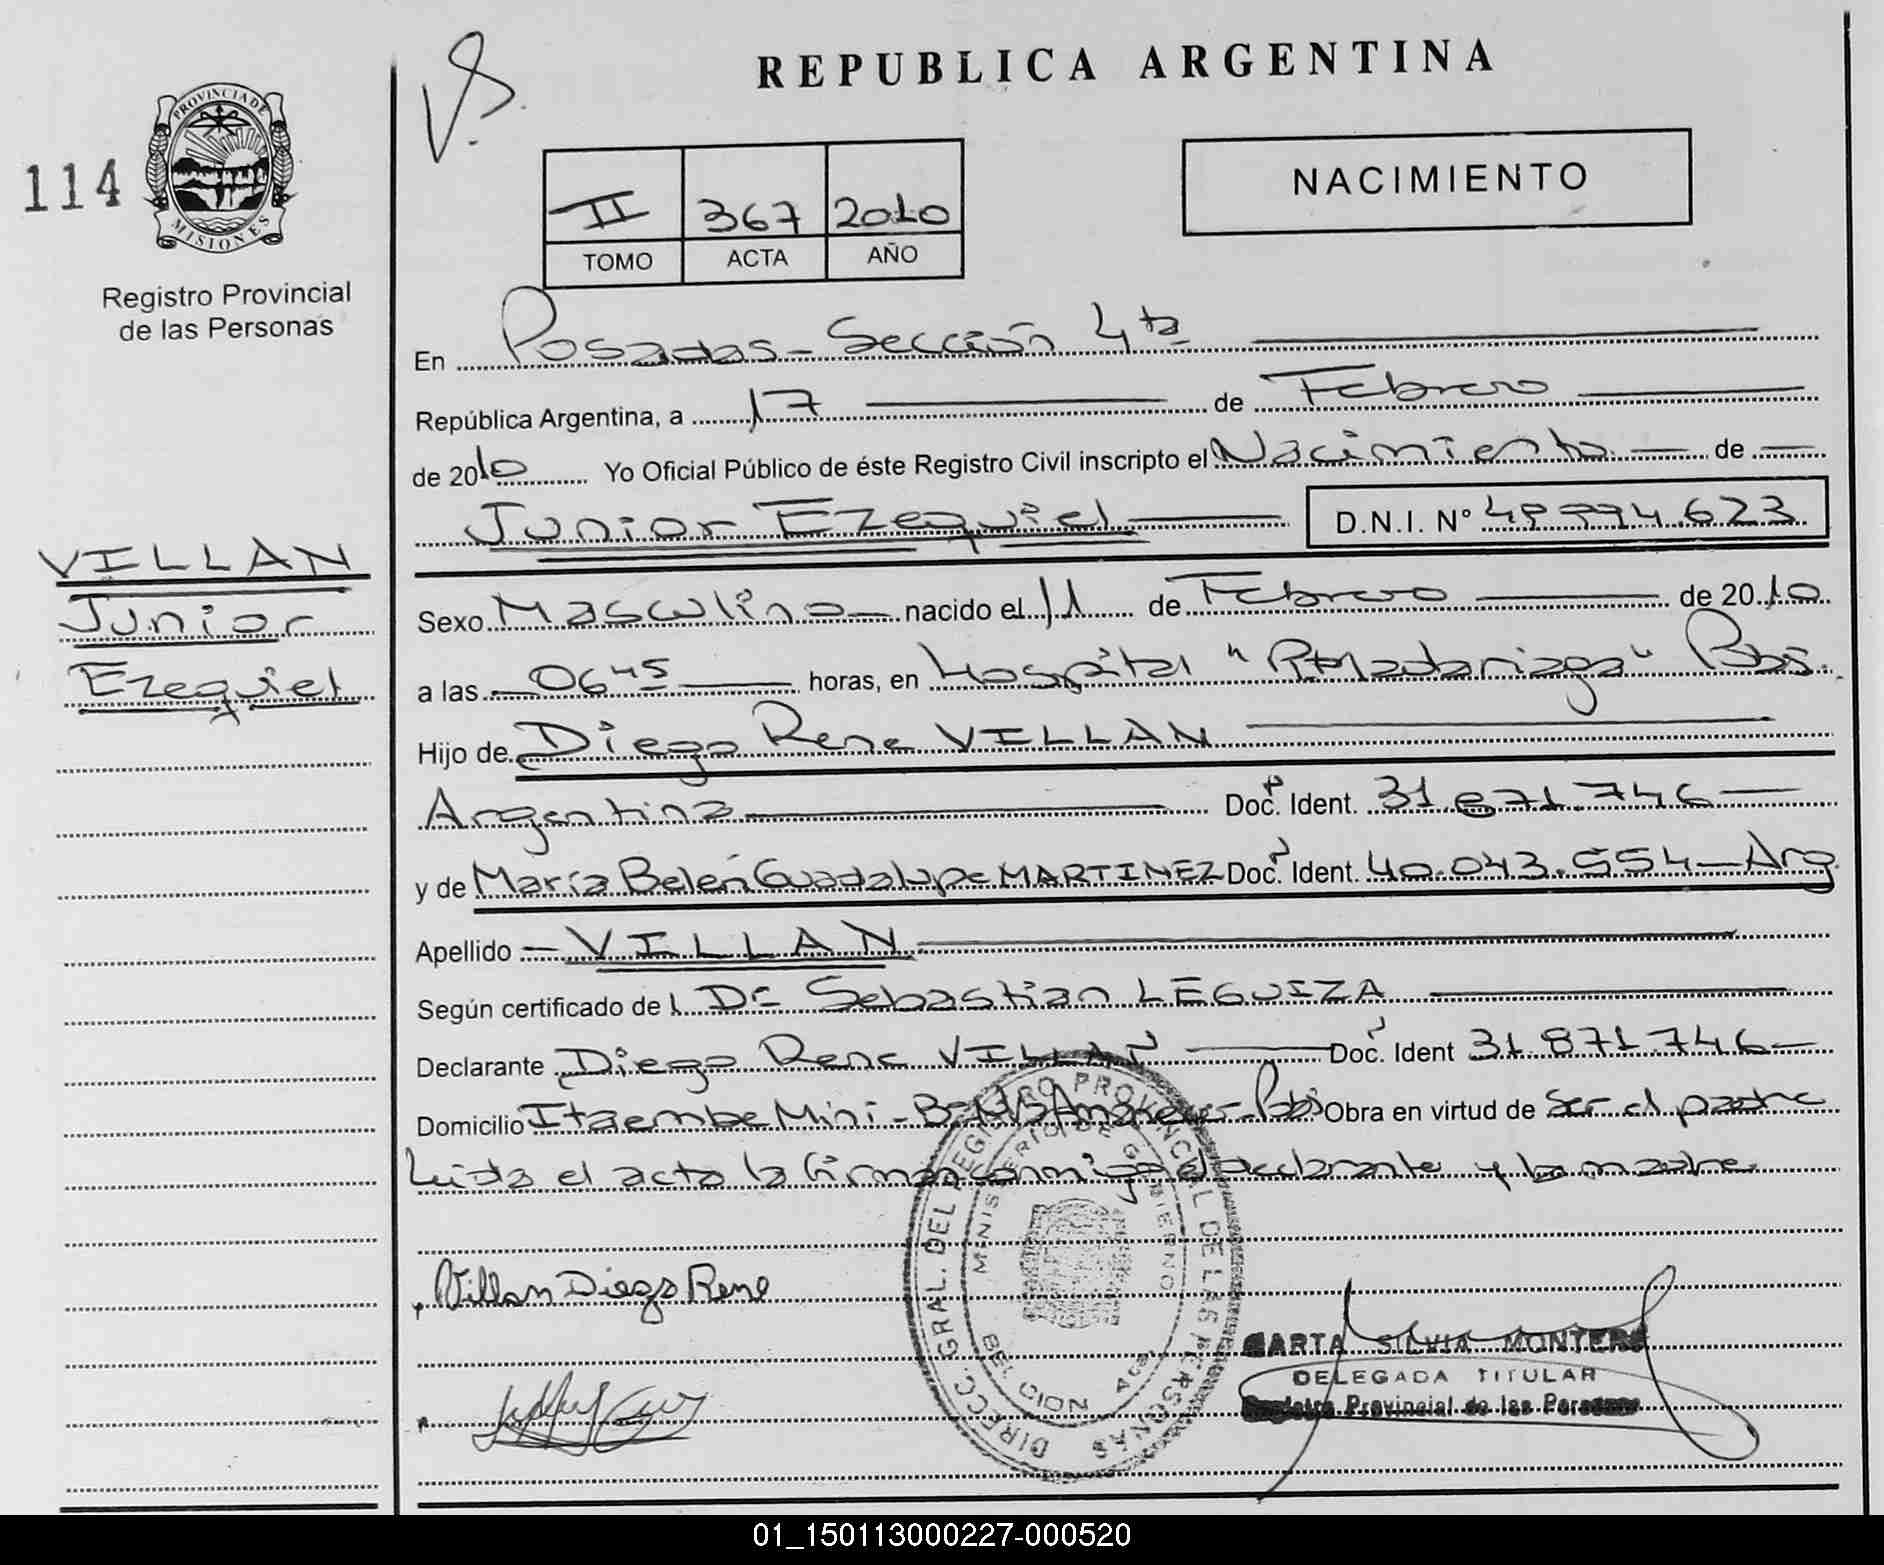 REPUBLICA ARGENTINA
V.S.
114
PROVINCIA DE
MISIONES
Registro Provincial
de las Personas
II 367 2010
TOMO ACTA AÑO
NACIMIENTO
En Posadas - Sección 4ta
República Argentina, a 17 de Febrero
de 2010 Yo Oficial Público de éste Registro Civil inscripto el Nacimiento de
Junior Ezequiel D.N.I. N° 49.994.623
VILLAN
Junior
Ezequiel
Sexo Masculino nacido el 11 de Febrero de 2010
a las 06 45 horas, en Hospital "R Madariaga" Pdas.
Hijo de Diego Rene VILLAN
Argentina Doc. Ident. 31.871.746
y de María Belén Guadalupe MARTINEZ Doc. Ident. 40.043.554 - Arg
Apellido VILLAN
Según certificado del Dr Sebastian LEGUIZA
Declarante Diego Rene VILLAN Doc. Ident 31.871.746
Domicilio Itaembe Mini - Obra en virtud de ser el padre
Leida el acta la firman conmigo el declarante y la madre
Villan Diego Rene
DIRECC. GRAL. DEL REGISTRO PROVINCIAL DE LAS PERSONAS
MINISTERIO DE GOBIERNO
SILVIA MONTERO
DELEGADA TITULAR
Registro Provincial de las Personas
01_150113000227-000520